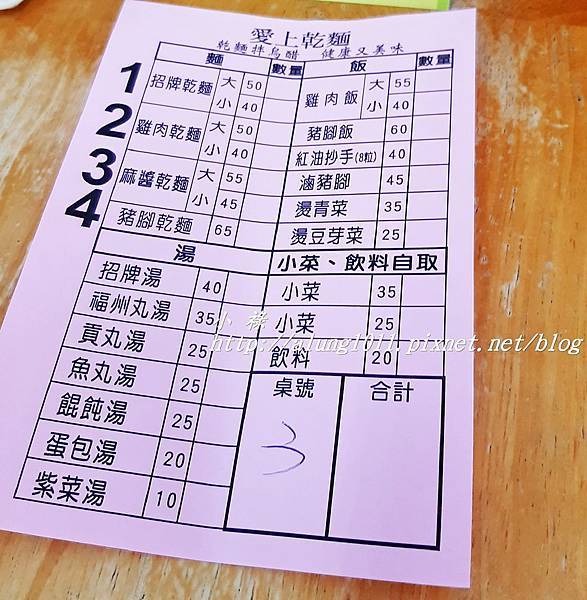 愛上乾麵
乾麵拌烏醋 健康又美味
麵 數量 飯 數量
1 招牌乾麵 大 50
小 40
2 雞肉乾麵 大 50
小 40
3 麻醬乾麵 大 55
小 45
4 豬腳乾麵 65
雞肉飯 大 55
小 40
豬腳飯 60
紅油抄手(8粒) 40
滷豬腳 45
燙青菜 35
燙豆芽菜 25
湯
招牌湯 40
福州丸湯 35
貢丸湯 25
魚丸湯 25
餛飩湯 25
蛋包湯 20
紫菜湯 10
小菜、飲料自取
小菜 35
小菜 25
飲料 20
桌號 合計
3
http://alung1011.pixnet.net/blog